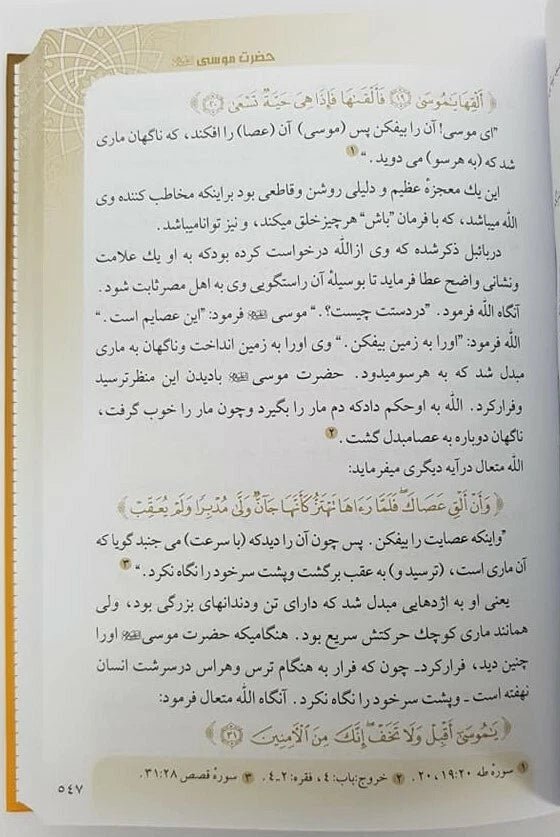 حضرت موسی ﷺ
﴿ أَلْقِهَا يَٰمُوسَىٰ ۝١٩ فَأَلْقَىٰهَا فَإِذَا هِىَ حَيَّةٌ تَسْعَىٰ ۝٢٠ ﴾
”ای موسی! آن را بیفکن پس (موسی) آن (عصا) را افکند، که ناگهان ماری
شد که (به هرسو) می دوید.“ ۱
این یك معجزهٔ عظیم و دلیلی روشن وقاطعی بود براینکه مخاطب کننده وی
الله میباشد، که با فرمان ”باش“ هرچیزخلق میکند، و نیز توانامیباشد.
دربائبل ذکرشده که وی ازالله درخواست کرده بودکه به او یك علامت
ونشانی واضح عطا فرماید تا بوسیلهٔ آن راستگویی وی به اهل مصرثابت شود.
آنگاه الله فرمود. ”دردستت چیست؟.“ موسی ﷺ فرمود: ”این عصایم است.“
الله فرمود: ”اورا به زمین بیفکن.“ وی اورا به زمین انداخت وناگهان به ماری
مبدل شد که به هرسومیدود. حضرت موسی ﷺ بادیدن این منظرترسید
وفرارکرد. الله به اوحکم دادکه دم مار را بگیرد وچون مار را خوب گرفت،
ناگهان دوباره به عصامبدل گشت. ۲
الله متعال درآیه دیگری میفرماید:
﴿ وَأَنْ أَلْقِ عَصَاكَ فَلَمَّا رَءَاهَا تَهْتَزُّ كَأَنَّهَا جَآنٌّ وَلَّىٰ مُدْبِرًا وَلَمْ يُعَقِّبْ ﴾
”واینکه عصایت را بیفکن. پس چون آن را دیدکه (با سرعت) می جنبد گویا که
آن ماری است، (ترسید و) به عقب برگشت وپشت سرخود را نگاه نکرد.“ ۳
یعنی او به اژدهایی مبدل شد که دارای تن ودندانهای بزرگی بود، ولی
همانند ماری کوچك حرکتش سریع بود. هنگامیکه حضرت موسی ﷺ اورا
چنین دید، فرارکرد- چون که فرار به هنگام ترس وهراس درسرشت انسان
نهفته است - وپشت سرخود را نگاه نکرد. آنگاه الله متعال فرمود:
﴿ يَٰمُوسَىٰٓ أَقْبِلْ وَلَا تَخَفْ إِنَّكَ مِنَ ٱلْءَامِنِينَ ۝٣١ ﴾
۱ سورهٔ طه ۲۰،۱۹:۲۰. ۲ خروج: باب:۴، فقره:۲-۴. ۳ سورهٔ قصص ۳۱:۲۸.
٥٤٧